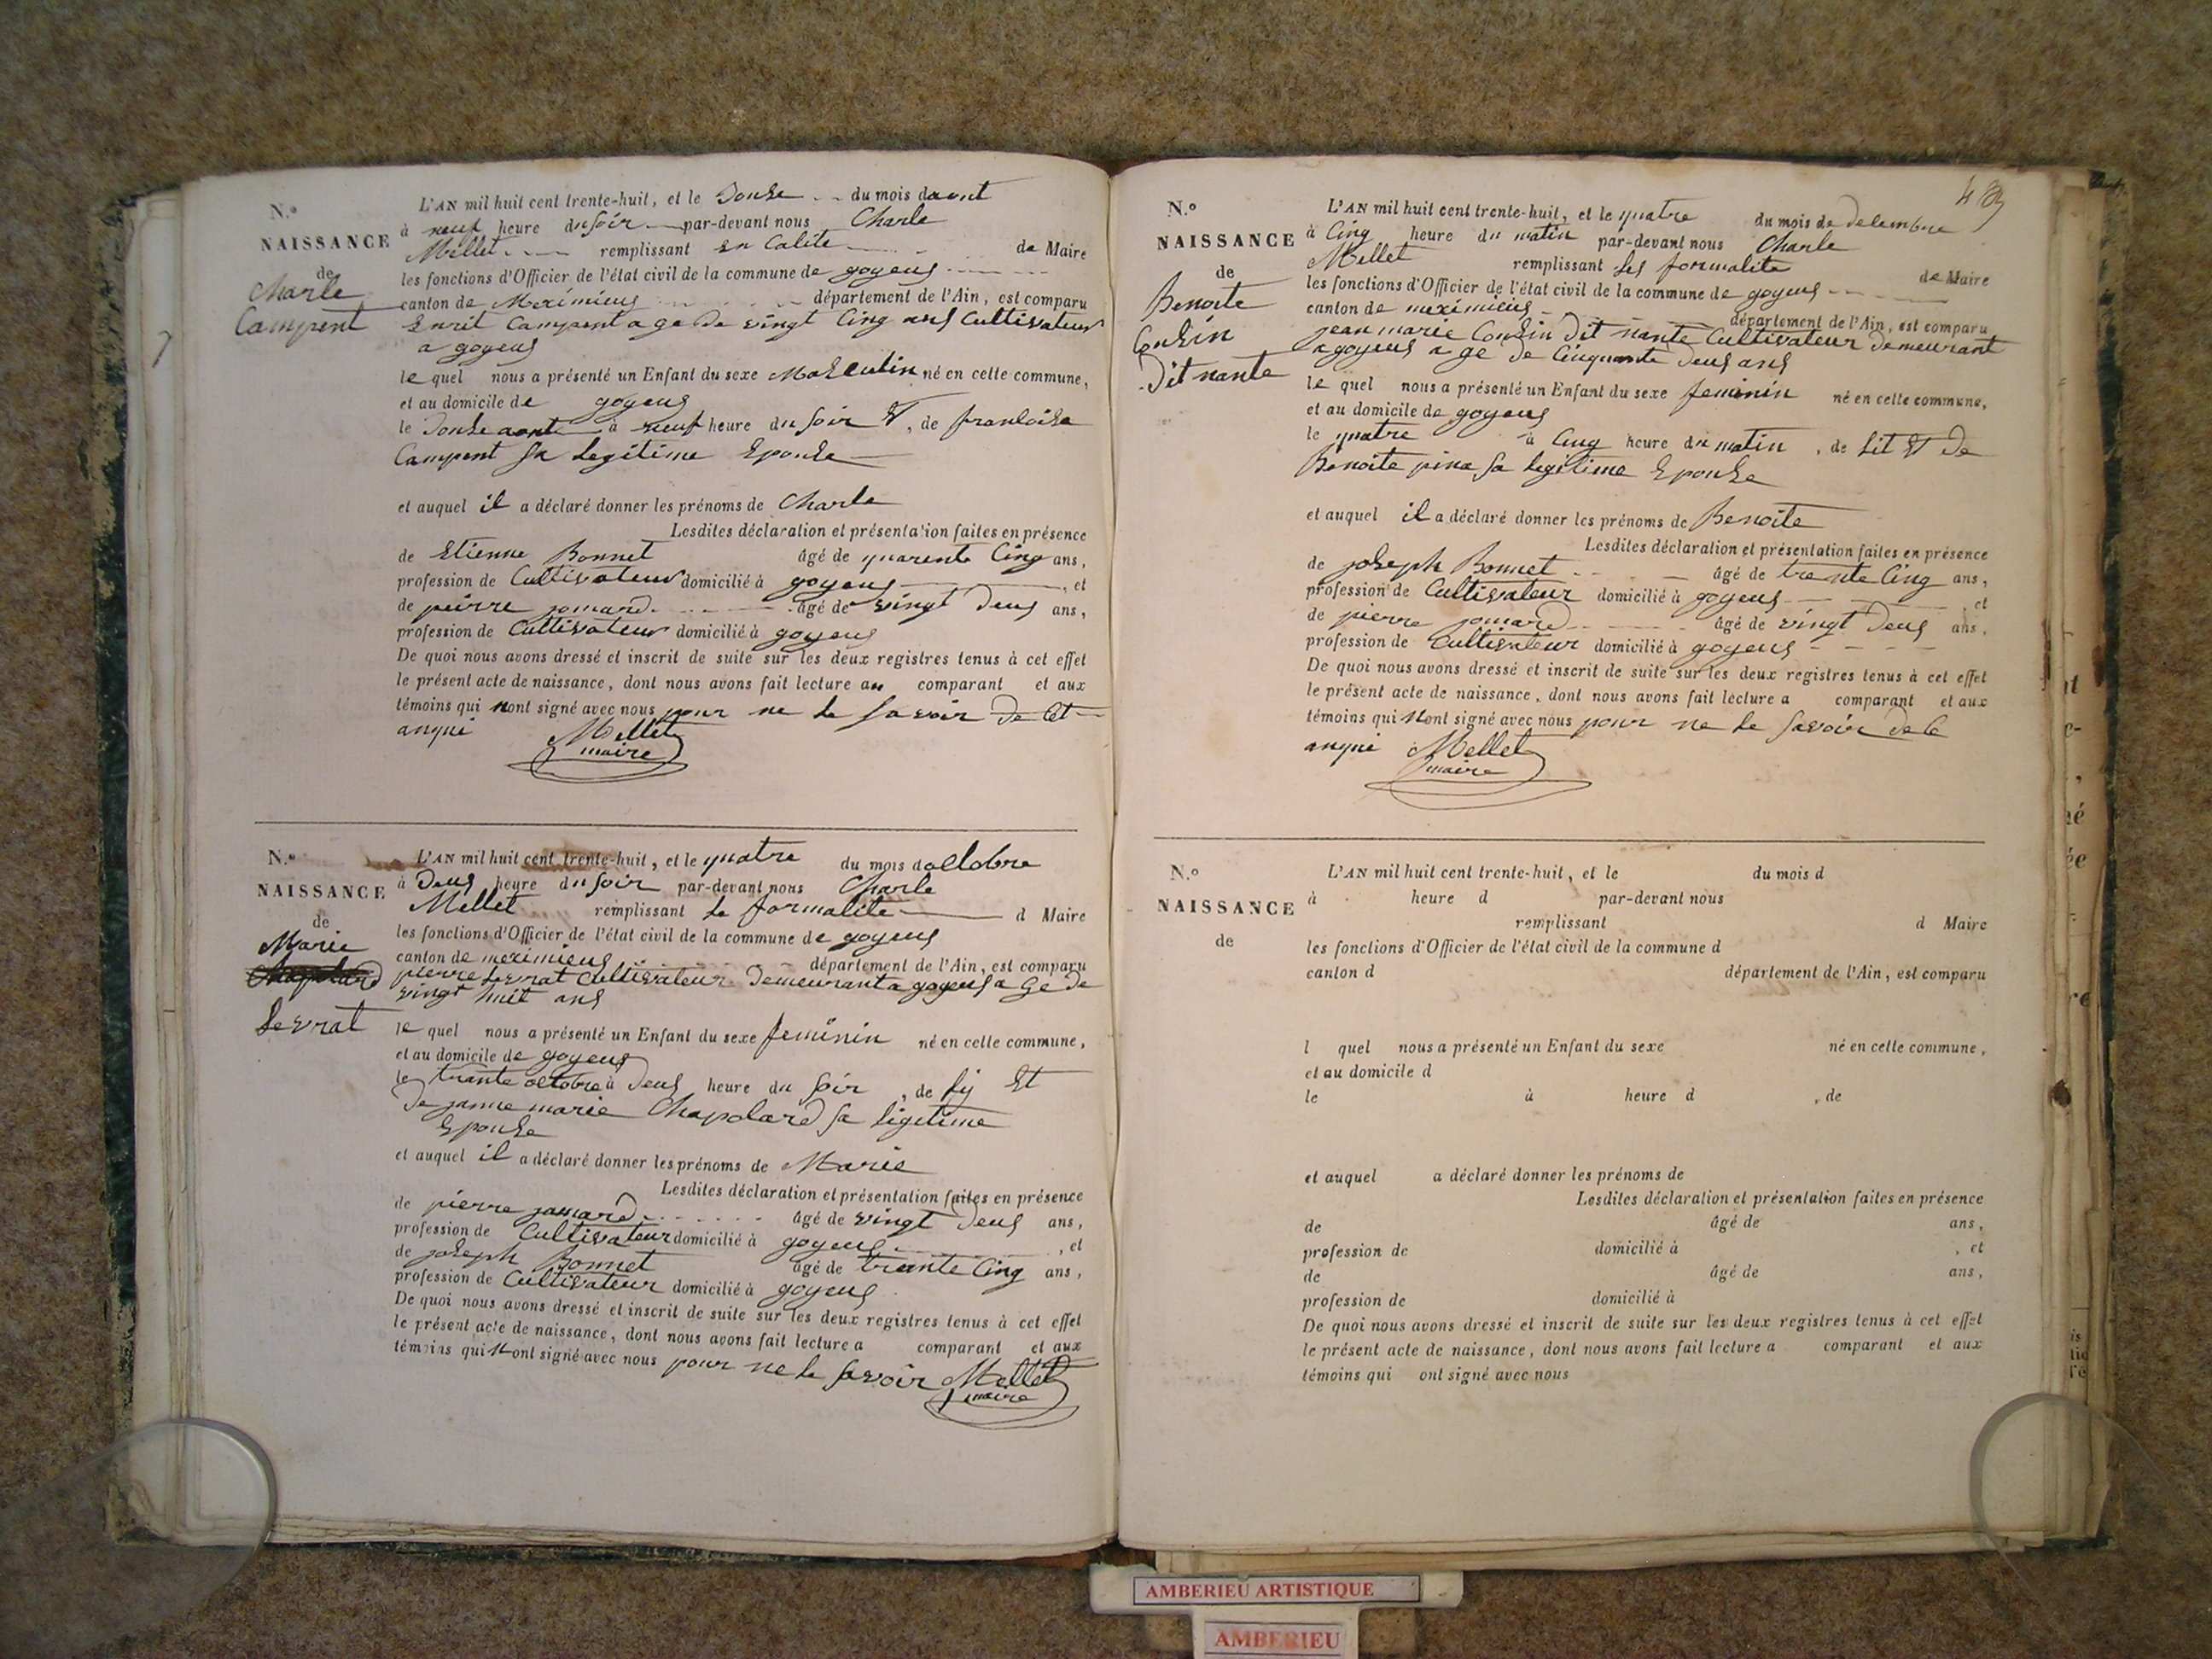 N.º
NAISSANCE
de
Charle
Campent
L'AN mil huit cent trente-huit, et le Douse du mois daout
à neuf heure du soir par-devant nous Charle
Mellet remplissant en Calite de Maire
les fonctions d'Officier de l'état civil de la commune de goyeus
canton de Meximieus département de l'Ain, est comparu
Enrit Campent a ge de vingt Cinq ans Cultivateur
a goyeus
le quel nous a présenté un Enfant du sexe Masculin né en cette commune,
et au domicile de goyeus
le Douse aout à neuf heure du soir et, de francoise
Campent sa legitime Epouse
et auquel il a déclaré donner les prénoms de Charle
Lesdites déclaration et présentation faites en présence
de Etienne Bonnet âgé de quarente Cinq ans,
profession de Cultivateur domicilié à goyeus, et
de peirre jomard âgé de vingt deus ans,
profession de Cultivateur domicilié à goyeus
De quoi nous avons dressé et inscrit de suite sur les deux registres tenus à cet effet
le présent acte de naissance, dont nous avons fait lecture au comparant et aux
témoins qui nont signé avec nous pour ne le savoir de Cet
anqui Mellet
maire
N.º
NAISSANCE
de
Marie
Chapolard
Levrat
L'AN mil huit cent trente-huit, et le quatre du mois doctobre
à Deus heure du soir par-devant nous Charle
Mellet remplissant le formalite d Maire
les fonctions d'Officier de l'état civil de la commune de goyeus
canton de meximieus département de l'Ain, est comparu
pierre Levrat Cultivateur Demeurant a goyeus a Ge De
vingt huit ans
le quel nous a présenté un Enfant du sexe feminin né en cette commune,
et au domicile de goyeus
le trante octobre à Deus heure du soir, de ly Et
De janne marie Chapolard sa ligitime
Epouse
et auquel il a déclaré donner les prénoms de Marie
Lesdites déclaration et présentation faites en présence
de pierre jomard âgé de vingt deus ans,
profession de Cultivateur domicilié à goyeus, et
de joseph Bonnet âgé de trante Cinq ans,
profession de Cultivateur domicilié à goyeus
De quoi nous avons dressé et inscrit de suite sur les deux registres tenus à cet effet
le présent acte de naissance, dont nous avons fait lecture a comparant et aux
témoins qui nont signé avec nous pour ne le savoir Mellet
maire
N.º
NAISSANCE
de
Benoite
Cousin
Dit nante
L'AN mil huit cent trente-huit, et le quatre du mois de decembre
à Cinq heure du matin par-devant nous Charle
Mellet remplissant les formalite de Maire
les fonctions d'Officier de l'état civil de la commune de goyeus
canton de meximieus département de l'Ain, est comparu
jean marie Cousin Dit nante Cultivateur Demeurant
a goyeus a ge de Cinquante Deus ans
le quel nous a présenté un Enfant du sexe feminin né en cette commune,
et au domicile de goyeus
le quatre à Cinq heure du matin, de Lit et De
Benoite pina sa legitime Epouse
et auquel il a déclaré donner les prénoms de Benoite
Lesdites déclaration et présentation faites en présence
de joseph Bonnet âgé de trente Cinq ans,
profession de Cultivateur domicilié à goyeus, et
de pierre jomard âgé de vingt Deus ans,
profession de Cultivateur domicilié à goyeus
De quoi nous avons dressé et inscrit de suite sur les deux registres tenus à cet effet
le présent acte de naissance, dont nous avons fait lecture a comparant et aux
témoins qui nont signé avec nous pour ne le savoir de C
anqui Mellet
maire
N.º
NAISSANCE
de
L'AN mil huit cent trente-huit, et le du mois d
à heure d par-devant nous
remplissant d Maire
les fonctions d'Officier de l'état civil de la commune d
canton d département de l'Ain, est comparu
l quel nous a présenté un Enfant du sexe né en cette commune,
et au domicile d
le à heure d, de
et auquel a déclaré donner les prénoms de
Lesdites déclaration et présentation faites en présence
de âgé de ans,
profession de domicilié à, et
de âgé de ans,
profession de domicilié à
De quoi nous avons dressé et inscrit de suite sur les deux registres tenus à cet effet
le présent acte de naissance, dont nous avons fait lecture a comparant et aux
témoins qui ont signé avec nous
AMBERIEU ARTISTIQUE
AMBERIEU